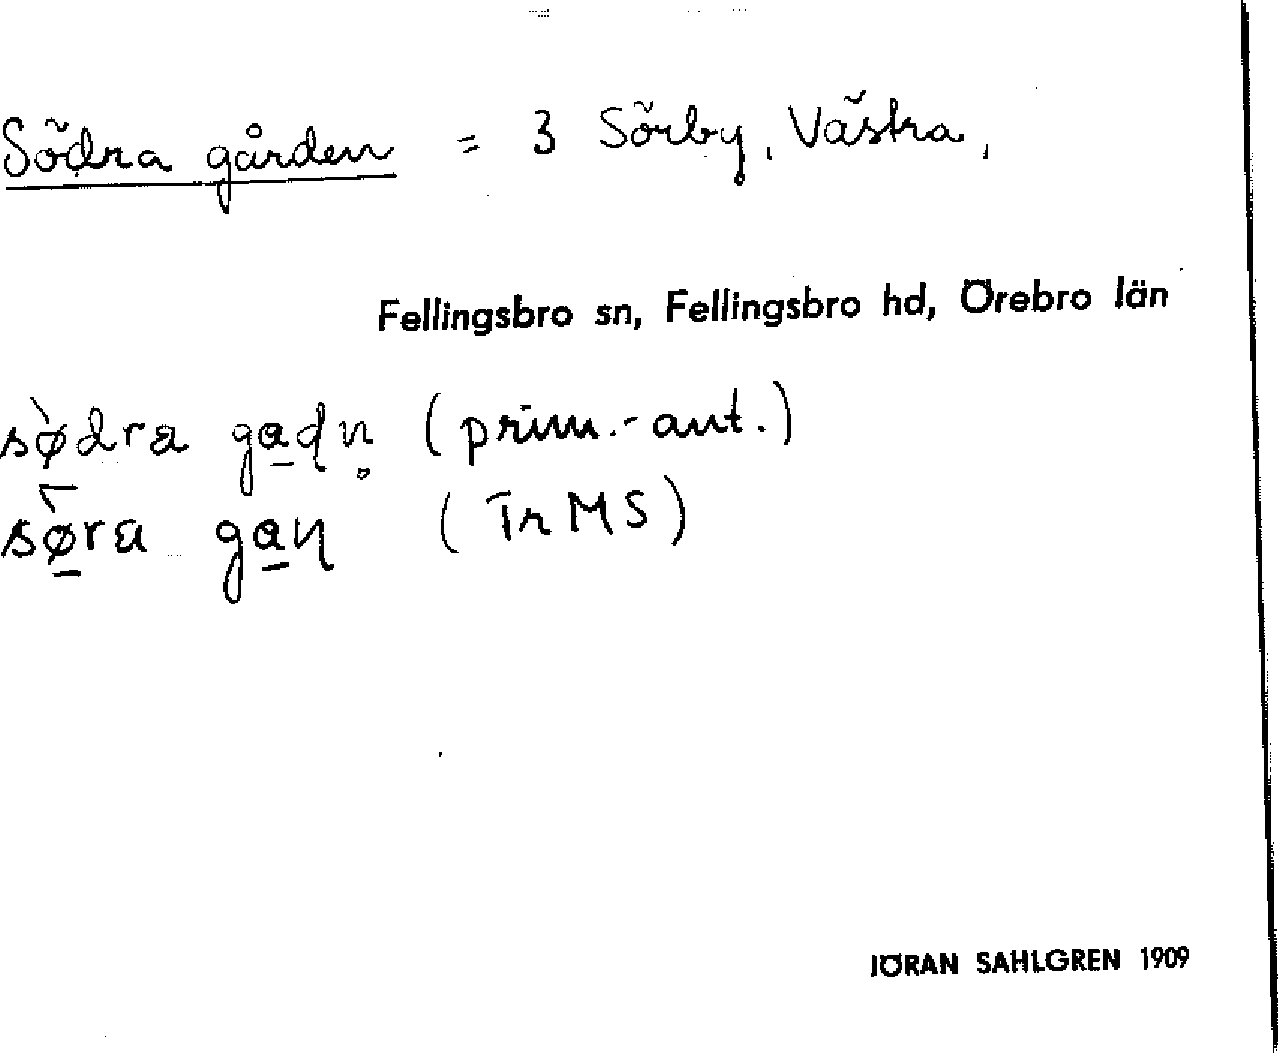 Södra gården = 3 Sörby, Västra,
Fellingsbro sn, Fellingsbro hd, Örebro län
sø̀dra ga̱dn̥ (prim.-ant.)
sø̱ra ga̱n (Tr MS)
JÖRAN SAHLGREN 1909